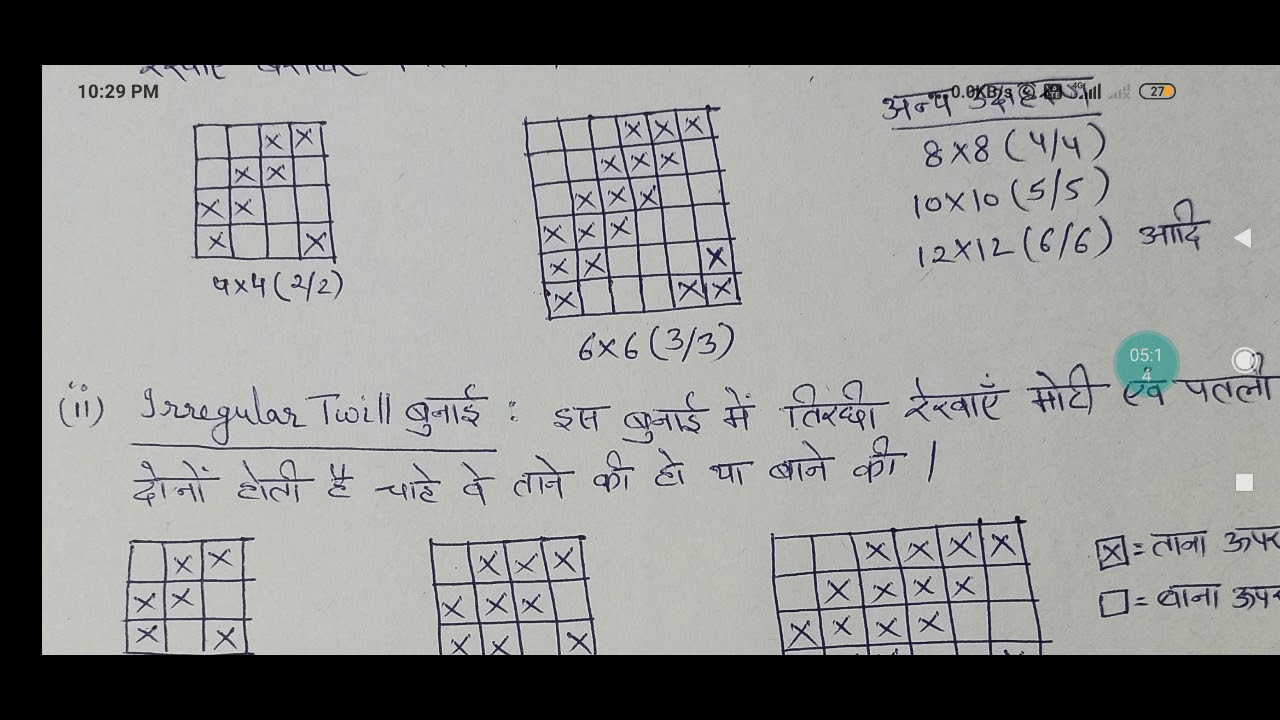 10:29 PM
0.0KB/s
27
अन्य उदाहरण
8×8 (4/4)
10×10 (5/5)
12×12 (6/6) आदि
4×4 (2/2)
6×6 (3/3)
05:14
(ii) Irregular Twill बुनाई : इस बुनाई में तिरछी रेखाएँ मोटी एंव पतली
दोनों होती है चाहे वे ताने की हो या बाने की |
X = ताना ऊपर
= बाना ऊपर